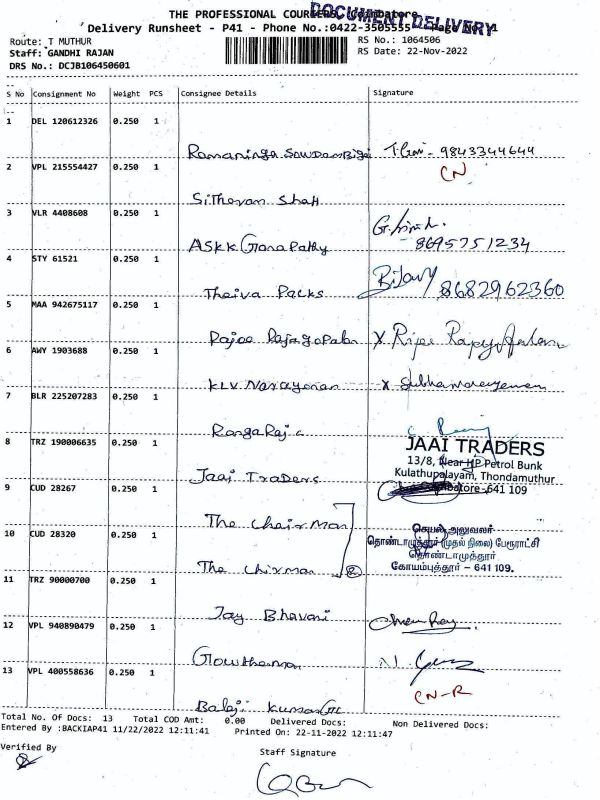 DOCUMENT DELIVERY
THE PROFESSIONAL COURIERS, Coimbatore
Delivery Runsheet - P41 - Phone No.:0422-3505555 Page No. 1
Route: T MUTHUR
RS No.: 1064506
Staff: GANDHI RAJAN
RS Date: 22-Nov-2022
DRS No.: DCJB106450601
S No Consignment No Weight PCS Consignee Details Signature
1 DEL 120612326 0.250 1
Ramaninga Sowdambigai 9843344644
2 VPL 215554427 0.250 1 CN
Sitheran Shah
3 VLR 4408608 0.250 1
ASKK Ganapathy 8695751234
4 STY 61521 0.250 1
Theiva Packs 8682962360
5 MAA 942675117 0.250 1
Rajoo Rajagopalan
6 AWY 1903688 0.250 1
KLV Narayanan
7 BLR 225207283 0.250 1
Rangaraj.c
8 TRZ 190006635 0.250 1
JAAI TRADERS
13/8, Near HP Petrol Bunk
Kulathupalayam, Thondamuthur
Jaai Traders
9 CUD 28267 0.250 1
Coimbatore-641 109
The Chairman
10 CUD 28320 0.250 1
செயல் அலுவலர்
தொண்டாமுத்தூர் (முதல் நிலை) பேரூராட்சி
தொண்டாமுத்தூர்
கோயம்புத்தூர் – 641 109.
The Chirman
11 TRZ 90000700 0.250 1
Jay Bhavani
12 VPL 940890479 0.250 1
Gowthaman
13 VPL 400558636 0.250 1
CN-R
Balaji Kumar
Total No. Of Docs: 13 Total COD Amt: 0.00 Delivered Docs: Non Delivered Docs:
Entered By :BACKIAP41 11/22/2022 12:11:41 Printed On: 22-11-2022 12:11:47
Verified By
Staff Signature